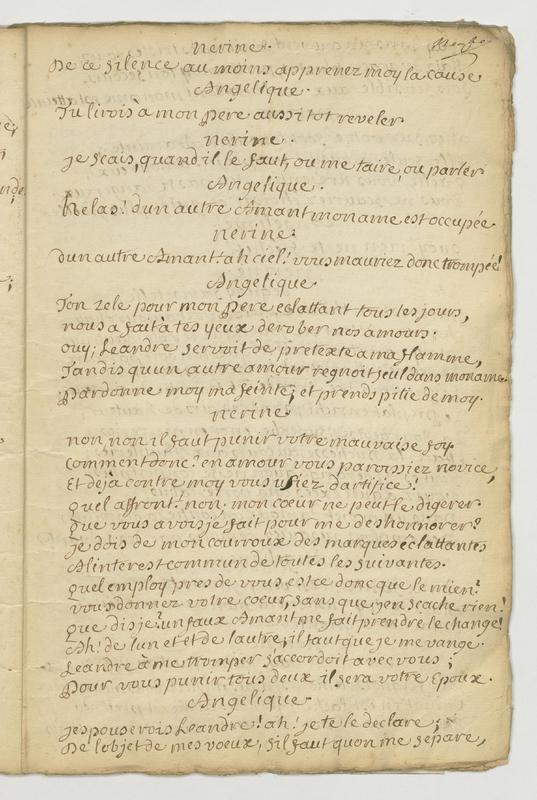 nerine.
De ce silence au moins apprenez moy la cause
Angelique.
Tu lirois à mon Pere aussitot reveler.
nerine.
je scais, quand il le faut, ou me taire, ou parler
Angelique.
helas! dun autre Amant mon ame est occupée
nerine.
dun autre Amant! ah ciel! vous mauriez donc trompée!
Angelique.
Ton zele pour mon Pere eclattant tous les jours,
nous a fait à tes yeux derober nos amours.
ouy; Leandre servoit de pretexte a ma flamme,
Tandis quun autre amour regnoit seul dans mon ame.
Pardonne moy ma feinte, et prends pitié de moy.
nerine.
non, non il faut punir votre mauvaise foy.
comment donc! en amour vous paroissiez novice,
Et dèja contre moy vous usiez dartifice!
quel affront! non. mon coeur ne peut le digerer.
que vous avois je fait pour me deshonnorer?
je dois de mon courroux des marques éclattantes
A linterest commun de toutes les suivantes.
quel employ pres de vous est ce donc que le mien?
vous donnez votre coeur, sans que jen scache rien!
que dis je! un faux Amant me fait prendre le change!
Ah! de lun et et de lautre, il faut que je me vange.
Leandre à me tromper saccordoit avec vous;
Pour vous punir tous deux il sera votre Epoux.
Angelique.
jespouserois Leandre! ah! je te le declare;
De lobjet de mes voeux, sil faut quon me separe,